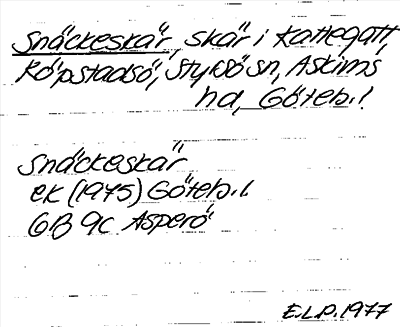 Snäckeskär, skär i Kattegatt,
Köpstadsö, Styrsö sn, Askims
hd, Göteb. l
Snäckeskär
ek (1975) Göteb. l
6B 9c Asperö
E.L.P. 1977